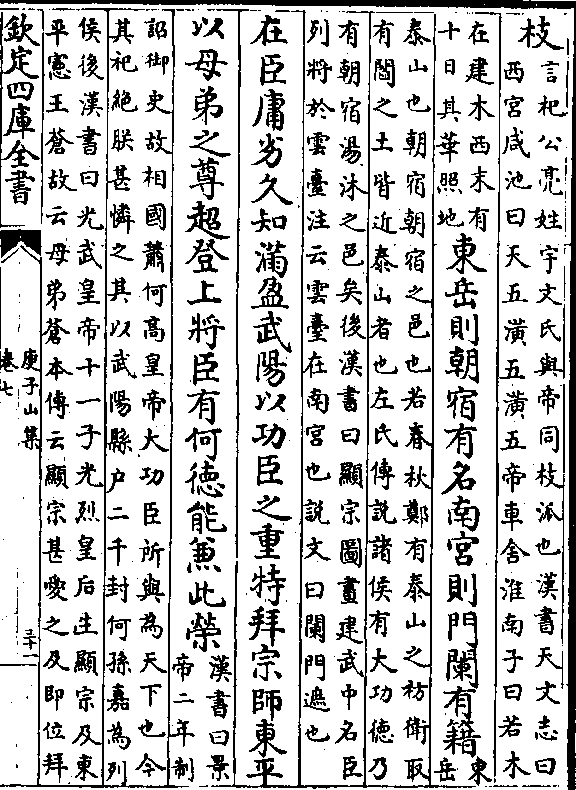 枝言祀公亮姓宇文氏與帝同枝派也漢書天文志曰
西宮咸池曰天五潢五潢五帝車舍淮南子曰若木
在建木西末有
十日其華照地東岳則朝宿有名南宮則門闌有籍東
岳
泰山也朝宿朝宿之邑也若春秋鄭有泰山之祊衛取
有閻之土皆近泰山者也左氏傳説諸侯有大功德乃
有朝宿湯沐之邑矣後漢書曰顯宗圖畫建武中名臣
列將於雲臺注云雲臺在南宮也説文曰闌門遮也
在臣庸劣久知滿盈武陽以功臣之重特拜宗師東平
以母弟之尊超登上將臣有何德能兼此榮漢書曰景
帝二年制
詔御史故相國蕭何高皇帝大功臣所與為天下也今
其祀絶朕甚憐之其以武陽縣户二千封何孫嘉為列
侯後漢書曰光武皇帝十一子光烈皇后生顯宗及東
平憲王蒼故云母弟蒼本傳云顯宗甚愛之及即位拜
欽定四庫全書
庾子山集
卷七
三十一